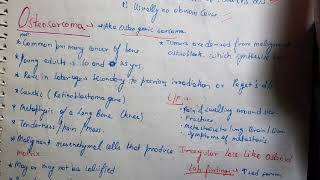 1. Usually no obvious cause
Osteosarcoma → Aka Osteogenic sarcoma
* Common primary cancer of bone
* Tumors are derived from malignant osteoblast, which synthesize
* Young adults → 10 and 25 yrs.
* Rare in later age & secondary to previous irradiation or Paget's d
* Genetic (Retinoblastoma gene)
* Metaphysis of a Long Bone (knee)
* Tenderness / Pain / Mass.
C/P
• Pain & swelling around
• Fracture
• Metastasis to lung, Brain
• Symptoms of metastasis
* Malignant mesenchymal cells that produce Irregular lace like Osteoid matrix
* May or may not be calcified
Lab findings